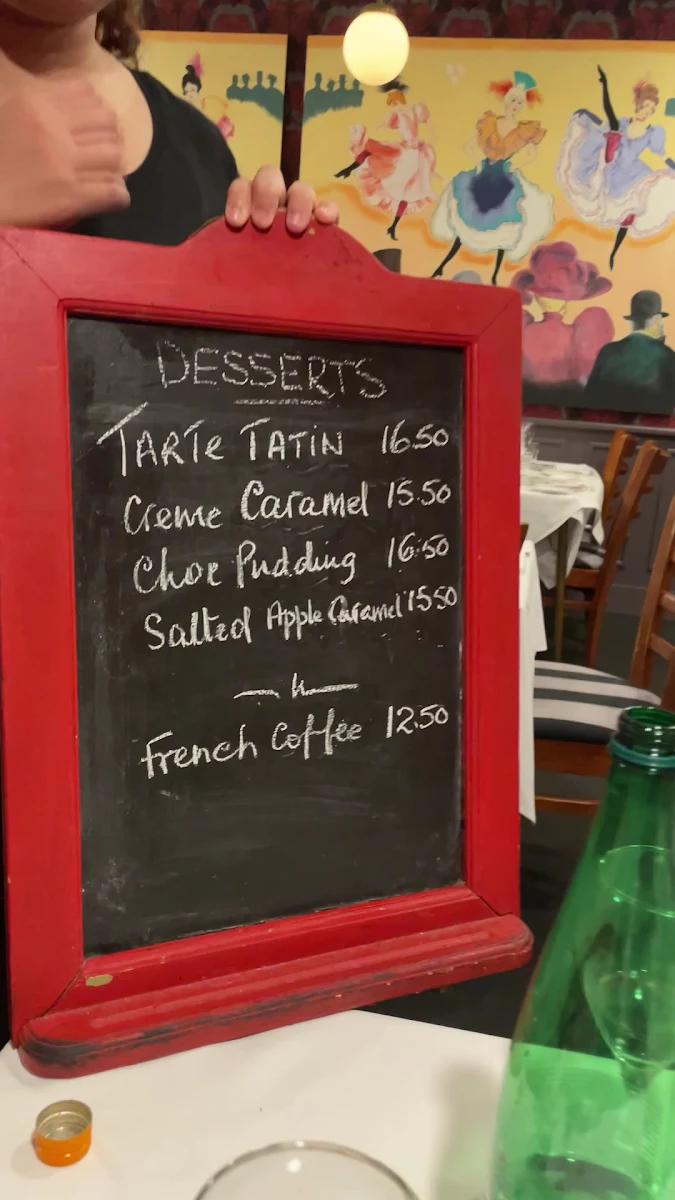 DESSERTS
TARTE TATIN 16.50
Creme Caramel 15.50
Choc Pudding 16.50
Salted Apple Caramel 15.50
French Coffee 12.50